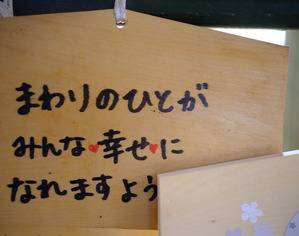 まわりのひとが
みんな♥幸せ♥に
なれますよう